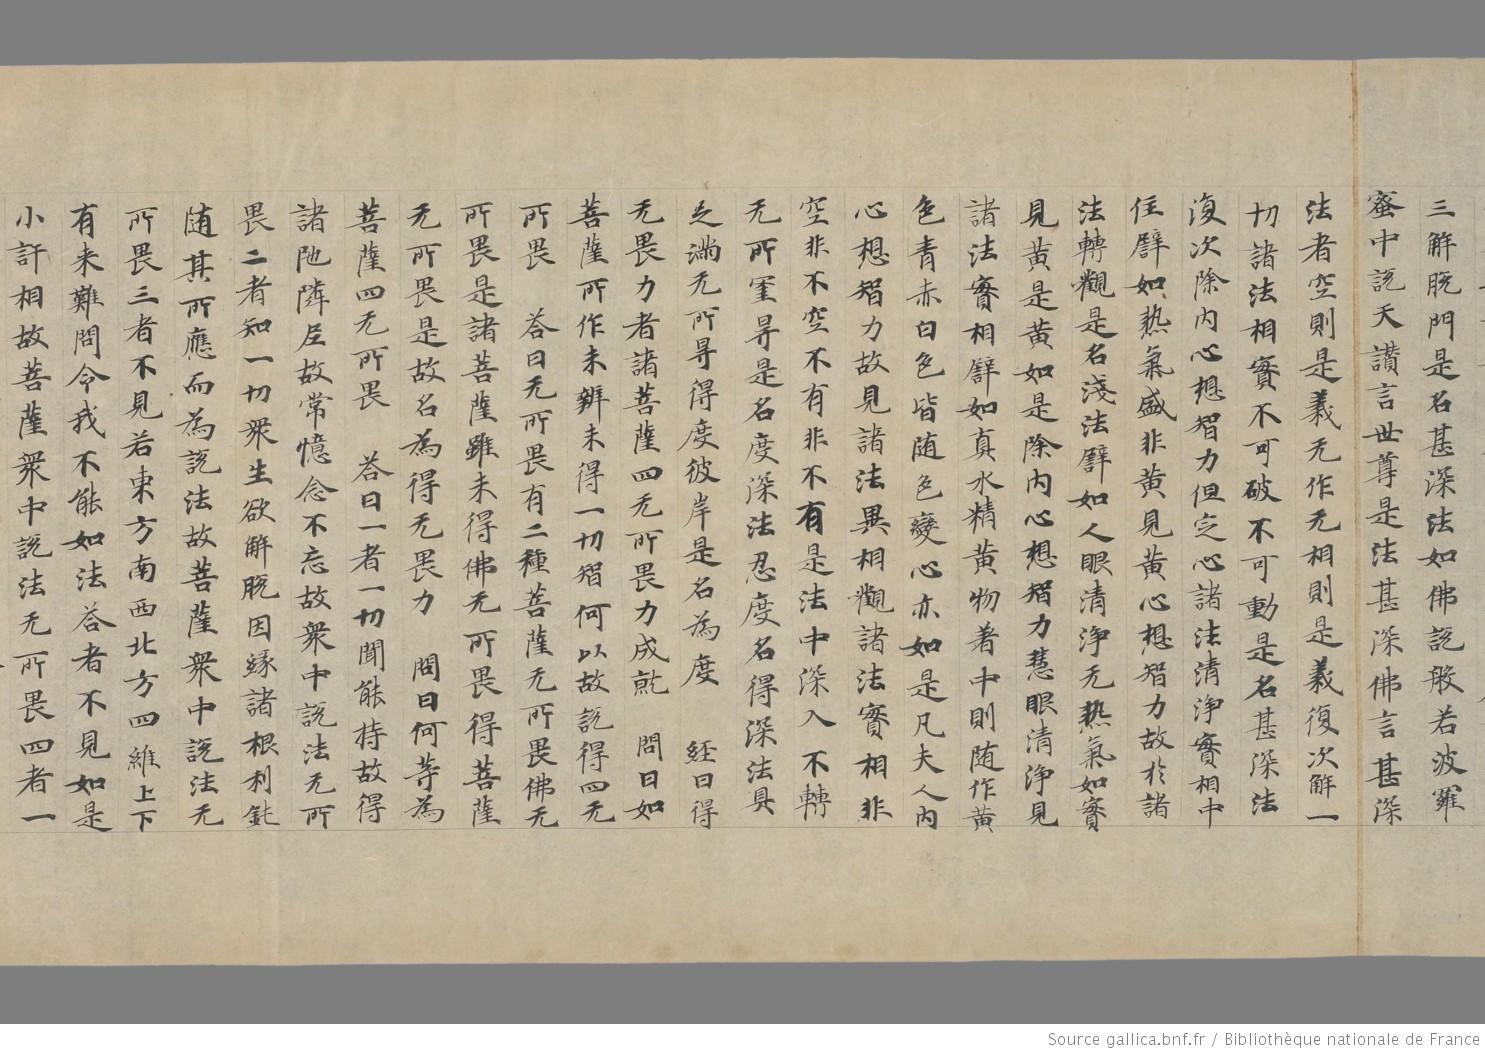 三解脫門是名甚深法如佛說般若波羅
蜜中說天讚言世尊是法甚深佛言甚深
法者空則是義无作无相則是義復次解一
切諸法相實不可破不可動是名甚深法
復次除內心想智力但定心諸法清淨實相中
住譬如熱氣盛非黃見黃心想智力故於諸
法轉觀是名淺法譬如人眼清淨无熱氣如實
見黃是黃如是除內心想智力慧眼清淨見
諸法實相譬如真水精黃物著中則随作黃
色青赤白色皆随色變心亦如是凡夫人內
心想智力故見諸法異相觀諸法實相非
空非不空不有非不有是法中深入不轉
无所罣㝵是名度深法忍度名得深法具
足滿无所㝵得度彼岸是名為度　經曰得
无畏力者諸菩薩四无所畏力成就　問曰如
菩薩所作未辦未得一切智何以故說得四无
所畏　荅曰无所畏有二種菩薩无所畏佛无
所畏是諸菩薩雖未得佛无所畏得菩薩
无所畏是故名為得无畏力　問曰何等為
菩薩四无所畏　荅曰一者一切聞能持故得
諸陁隣尼故常憶念不忘故衆中說法无所
畏二者知一切衆生欲解脫因緣諸根利鈍
随其所應而為說法故菩薩衆中說法无
所畏三者不見若東方南西北方四維上下
有来難問令我不能如法荅者不見如是
小許相故菩薩衆中說法无所畏四者一
Source gallica.bnf.fr / Bibliothèque nationale de France